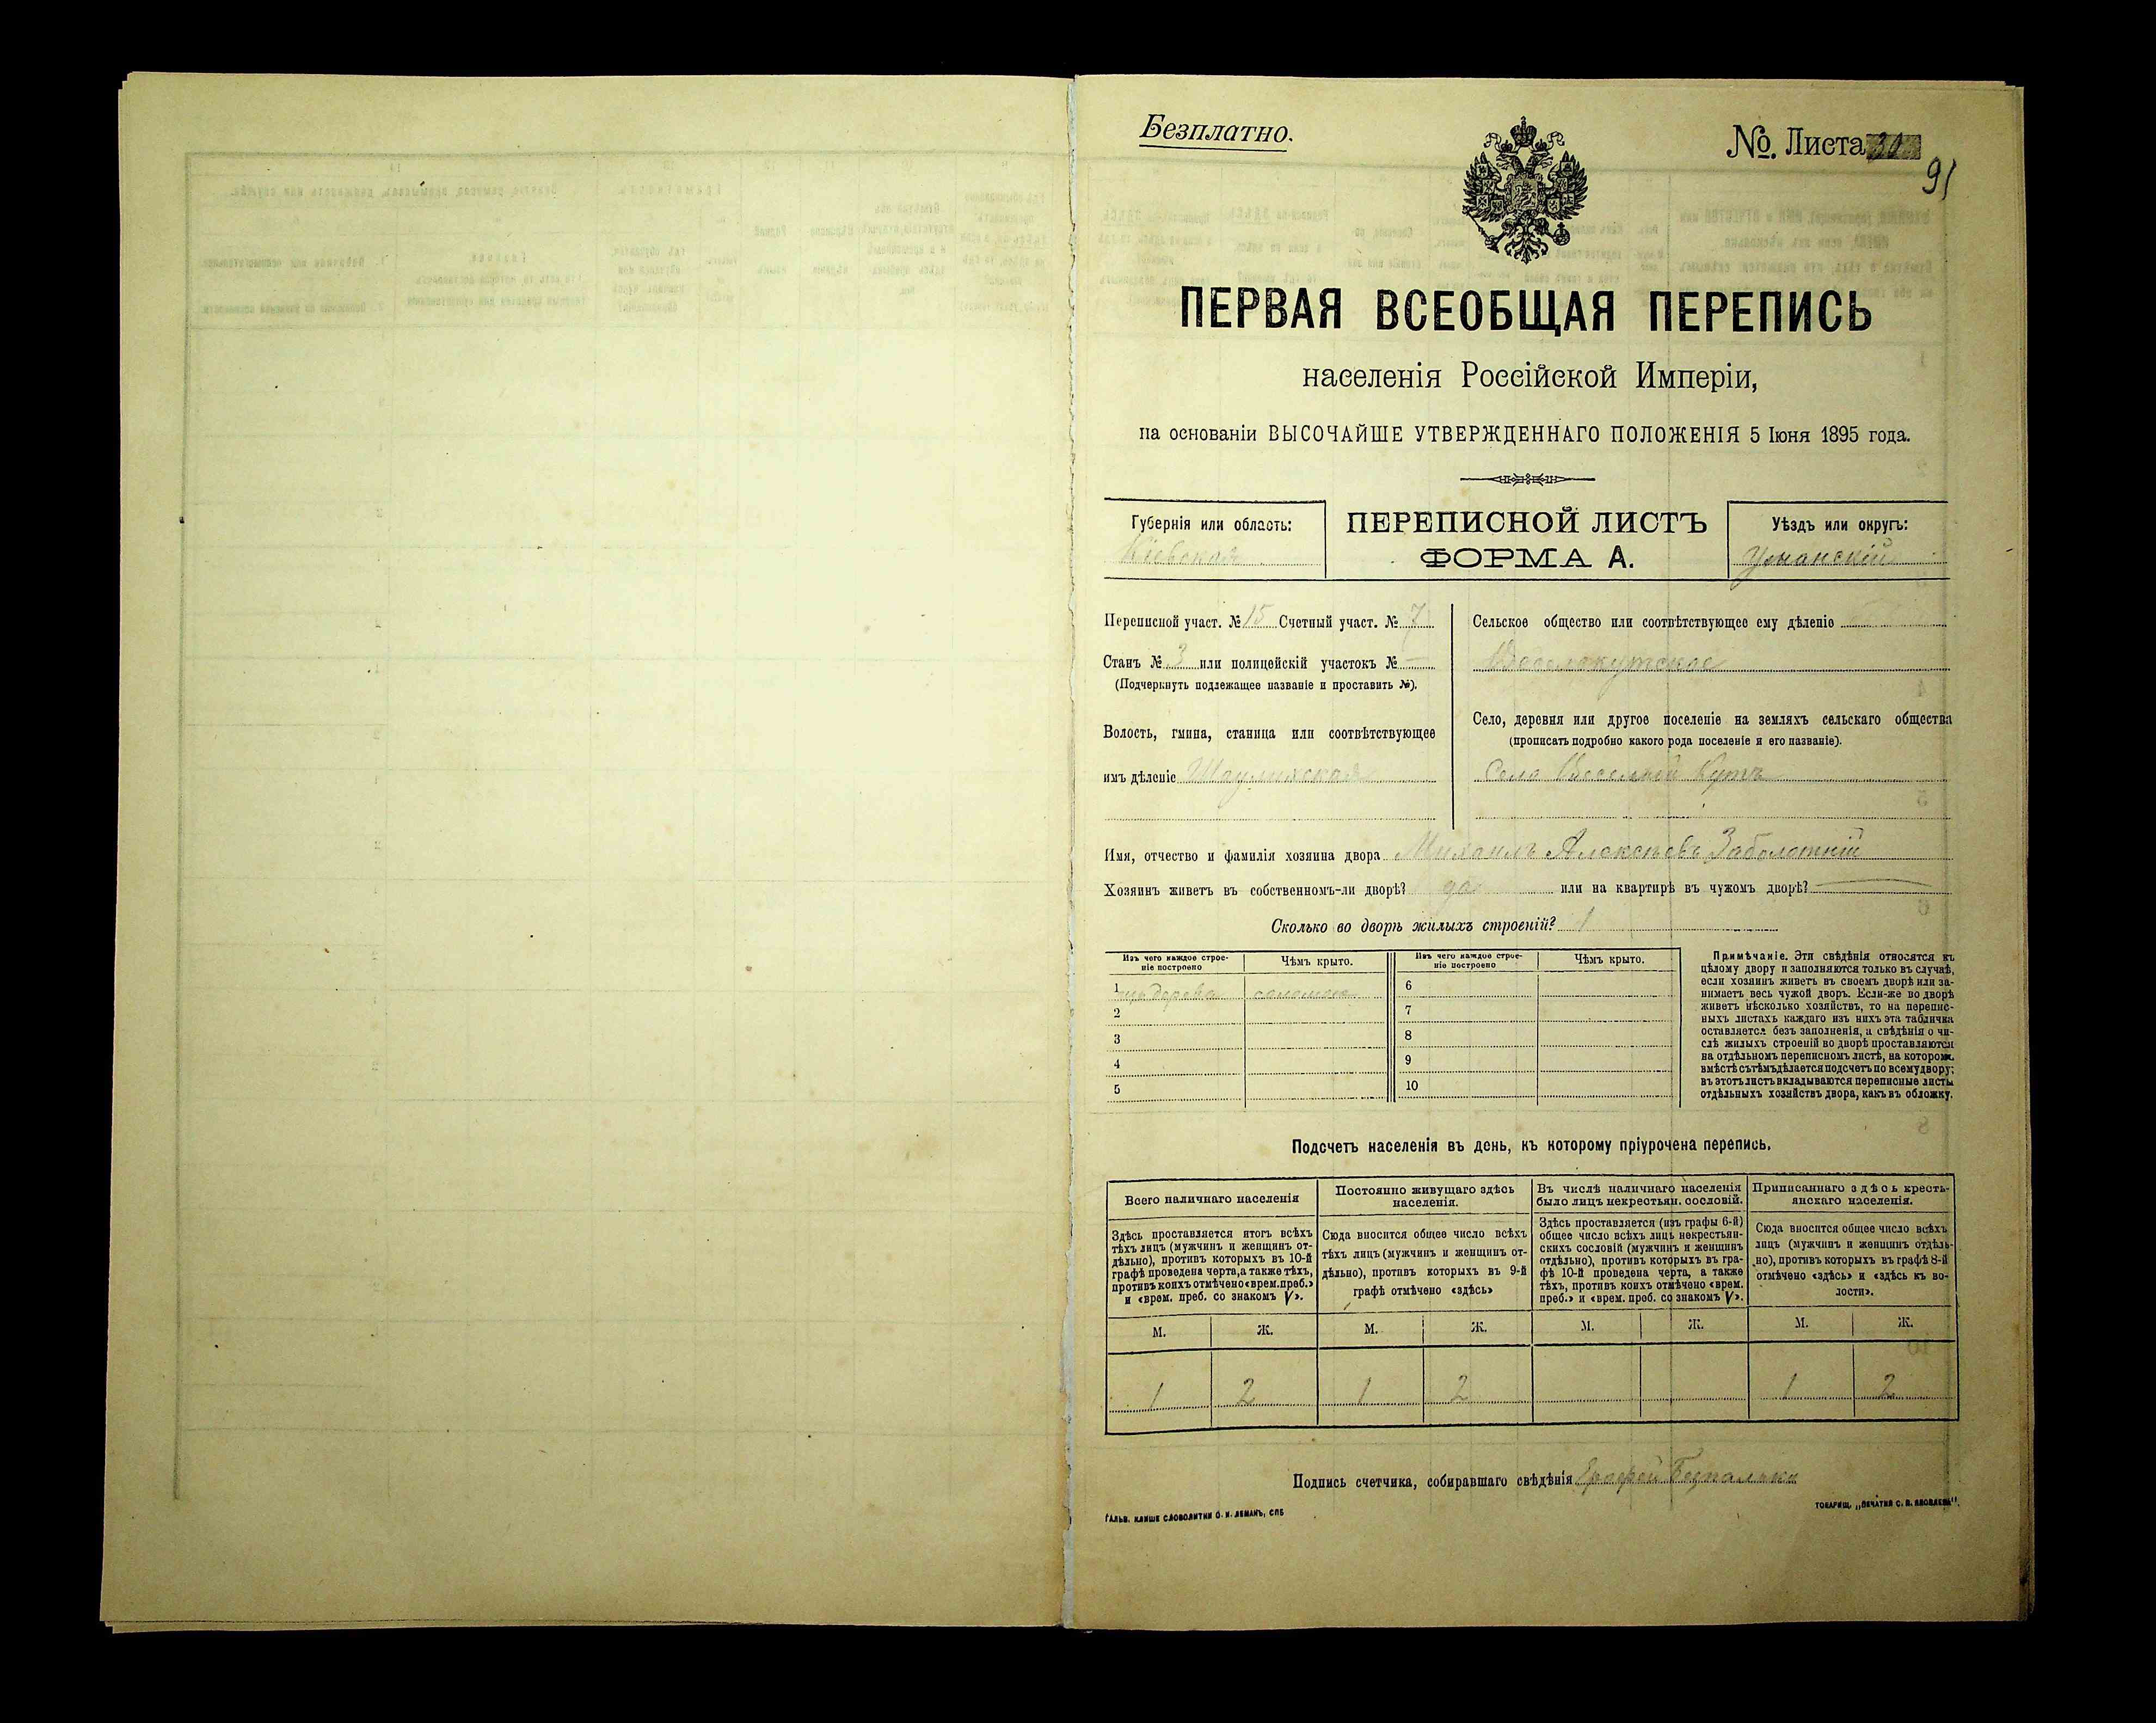 Безплатно.
№. Листа 30
91
ПЕРВАЯ ВСЕОБЩАЯ ПЕРЕПИСЬ
населенія Россійской Имперіи,
на основаніи ВЫСОЧАЙШЕ УТВЕРЖДЕННАГО ПОЛОЖЕНІЯ 5 Іюня 1895 года.
Губернія или область:
Кіевская
ПЕРЕПИСНОЙ ЛИСТЪ
ФОРМА А.
Уѣздъ или округъ:
Уманскій
Переписной участ. № 15 Счетный участ. № 7
Станъ № 3 или полицейскій участокъ № —
(Подчеркнуть подлежащее названіе и проставить №).
Волость, гмина, станица или соотвѣтствующее
имъ дѣленіе
Сельское общество или соотвѣтствующее ему дѣленіе
Веселокутское
Село, деревня или другое поселеніе на земляхъ сельскаго общества
(прописать подробно какого рода поселеніе и его названіе).
Село Веселый Кутъ
Имя, отчество и фамилія хозяина двора Михаилъ Алексѣевъ Заболотній
Хозяинъ живетъ въ собственномъ-ли дворѣ? да или на квартирѣ въ чужомъ дворѣ? —
Сколько во дворѣ жилыхъ строеній? 1
Изъ чего каждое строе-
ніе построено
Чѣмъ крыто.
Изъ чего каждое строе-
ніе построено
Чѣмъ крыто.
1 изъ дерева соломою 6
2 7
3 8
4 9
5 10
Примѣчаніе. Эти свѣдѣнія относятся къ
цѣлому двору и заполняются только въ случаѣ,
если хозяинъ живетъ въ своемъ дворѣ или за-
нимаетъ весь чужой дворъ. Если-же во дворѣ
живетъ нѣсколько хозяйствъ, то на перепис-
ныхъ листахъ каждаго изъ нихъ эта табличка
оставляется безъ заполненія, а свѣдѣнія о чи-
слѣ жилыхъ строеній во дворѣ проставляются
на отдѣльномъ переписномъ листѣ, на которомъ
вмѣстѣ съ тѣмъ дѣлается подсчетъ по всему двору;
въ этотъ листъ вкладываются переписные листы
отдѣльныхъ хозяйствъ двора, какъ въ обложку.
Подсчетъ населенія въ день, къ которому пріурочена перепись.
Всего наличнаго населенія
Здѣсь проставляется итогъ всѣхъ
тѣхъ лицъ (мужчинъ и женщинъ от-
дѣльно), противъ которыхъ въ 10-й
графѣ проведена черта, а также тѣхъ,
противъ коихъ отмѣчено «врем. преб.»
и «врем. преб. со знакомъ V».
Постоянно живущаго здѣсь
населенія.
Сюда вносится общее число всѣхъ
тѣхъ лицъ (мужчинъ и женщинъ от-
дѣльно), противъ которыхъ въ 9-й
графѣ отмѣчено «здѣсь»
Въ числѣ наличнаго населенія
было лицъ некрестьян. сословій.
Здѣсь проставляется (изъ графы 6-й)
общее число всѣхъ лицъ некрестьян-
скихъ сословій (мужчинъ и женщинъ
отдѣльно), противъ которыхъ въ гра-
фѣ 10-й проведена черта, а также
тѣхъ, противъ коихъ отмѣчено «врем.
преб.» и «врем. преб. со знакомъ V».
Приписаннаго здѣсь кресть-
янскаго населенія.
Сюда вносится общее число всѣхъ
лицъ (мужчинъ и женщинъ отдѣль-
но), противъ которыхъ въ графѣ 8-й
отмѣчено «здѣсь» и «здѣсь къ во-
лости».
М. Ж. М. Ж. М. Ж. М. Ж.
1 2 1 2 1 2
Подпись счетчика, собиравшаго свѣдѣнія
ГАЛЬВ. КЛИШЕ СЛОВОЛИТНИ О. И. ЛЕМАНЪ, СПБ
ТОВАРИЩ. „ПЕЧАТНЯ С. П. ЯКОВЛЕВА".